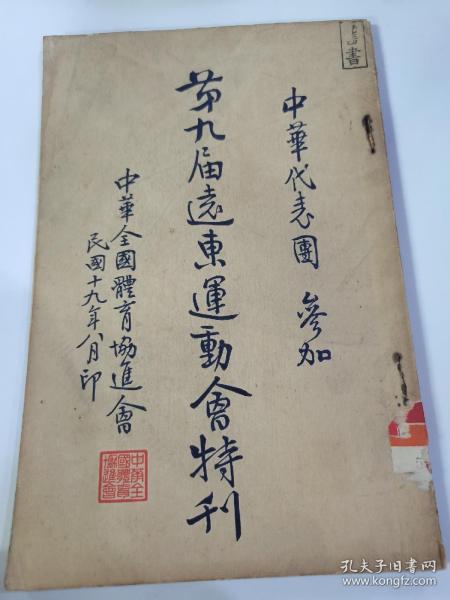 中華代表團 參加
第九届遠東運動會特刊
中華全國體育協進會
民國十九年八月印
中華全
國體育
協進會
書
孔夫子旧书网
www.kongfz.com